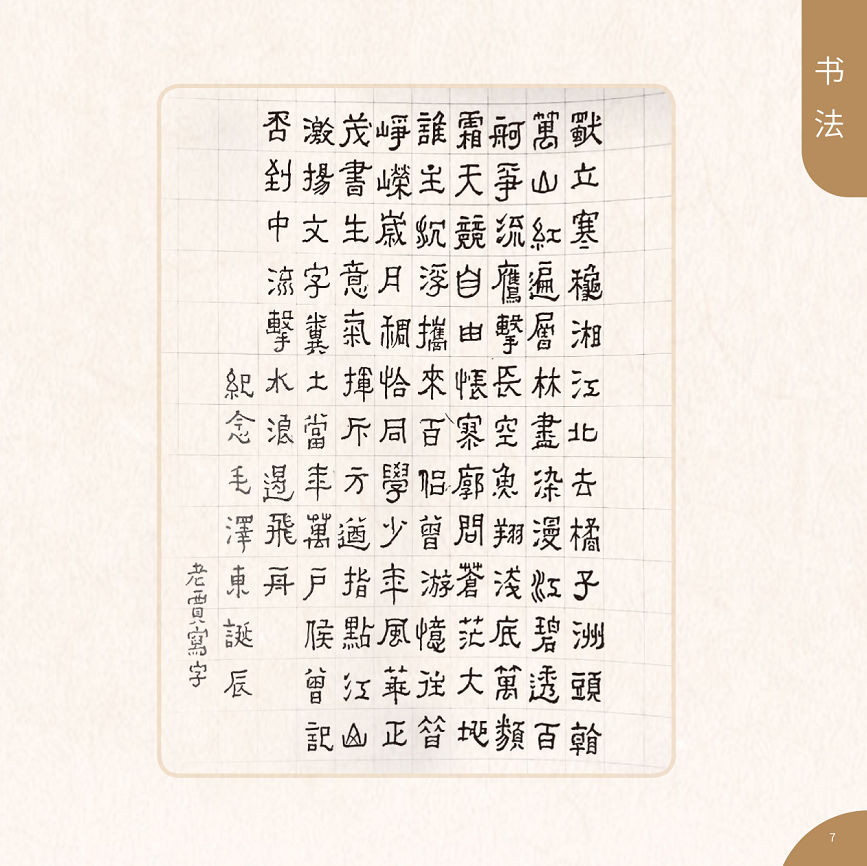 书法
獨立寒穐湘江北去橘子洲頭
萬山紅遍層林盡染漫江碧透百
舸爭流鷹擊長空魚翔淺底萬類
霜天競自由悵寥廓問蒼茫大地
誰主沉浮攜來百侶曾游憶往昔
崢嶸歲月稠恰同學少年風華正
茂書生意氣揮斥方遒指點江山
激揚文字糞土當年萬戶侯曾記
否到中流擊水浪遏飛舟
紀念毛澤東誕辰
老賈寫字
7